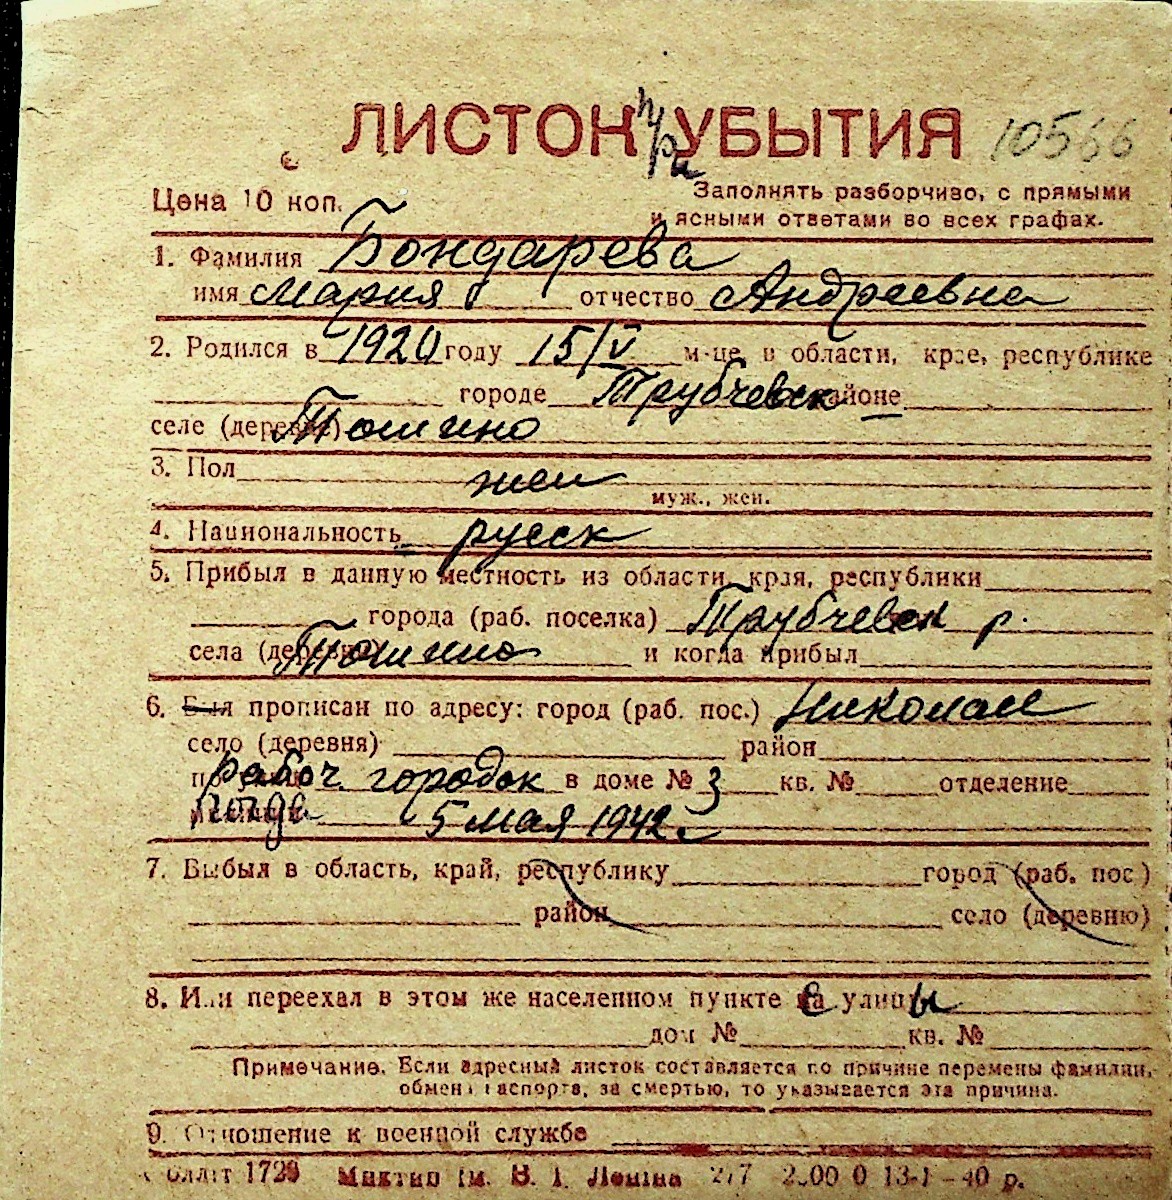 ЛИСТОК при УБЫТИЯ 10566
Цена 10 коп. Заполнять разборчиво, с прямыми
и ясными ответами во всех графах.
1. Фамилия Бондарева
имя Мария отчество Андреевна
2. Родился в 1920 году 15/V м-це, в области, крае, республике
городе Трубчевск районе
селе (деревне) Тошино
3. Пол жен
муж., жен.
4. Национальность русск
5. Прибыл в данную местность из области, края, республики
города (раб. поселка) Трубчевск р.
села (деревни) Тошино и когда прибыл
6. Был прописан по адресу: город (раб. пос.) Николаи
село (деревня) район
по рабоч. городок в доме № 3 кв. № отделение
милиции когда 5 мая 1942 г.
7. Выбыл в область, край, республику город (раб. пос.)
район село (деревню)
8. Или переехал в этом же населенном пункте на с улицы
дом № кв. №
Примечание. Если адресный листок составляется по причине перемены фамилии,
обмена паспорта, за смертью, то указывается эта причина.
9. Отношение к военной службе
1720 ім. В. І. Леніна 2,7 13-1-40 р.